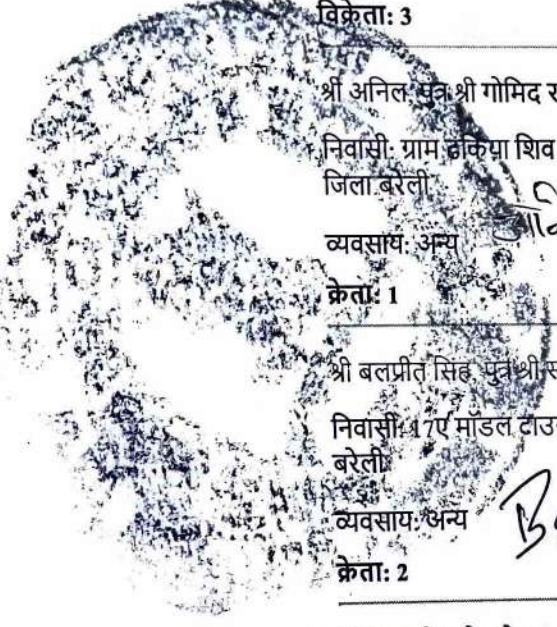 विक्रेता: 3
श्री अनिल, पुत्र श्री गोमिद
निवासी: ग्राम ढकिया शिव
जिला बरेली
व्यवसाय: अन्य
क्रेता: 1
श्री बलप्रीत सिंह, पुत्र श्री
निवासी: 17ए मॉडल टाउ
बरेली
व्यवसाय: अन्य
क्रेता: 2